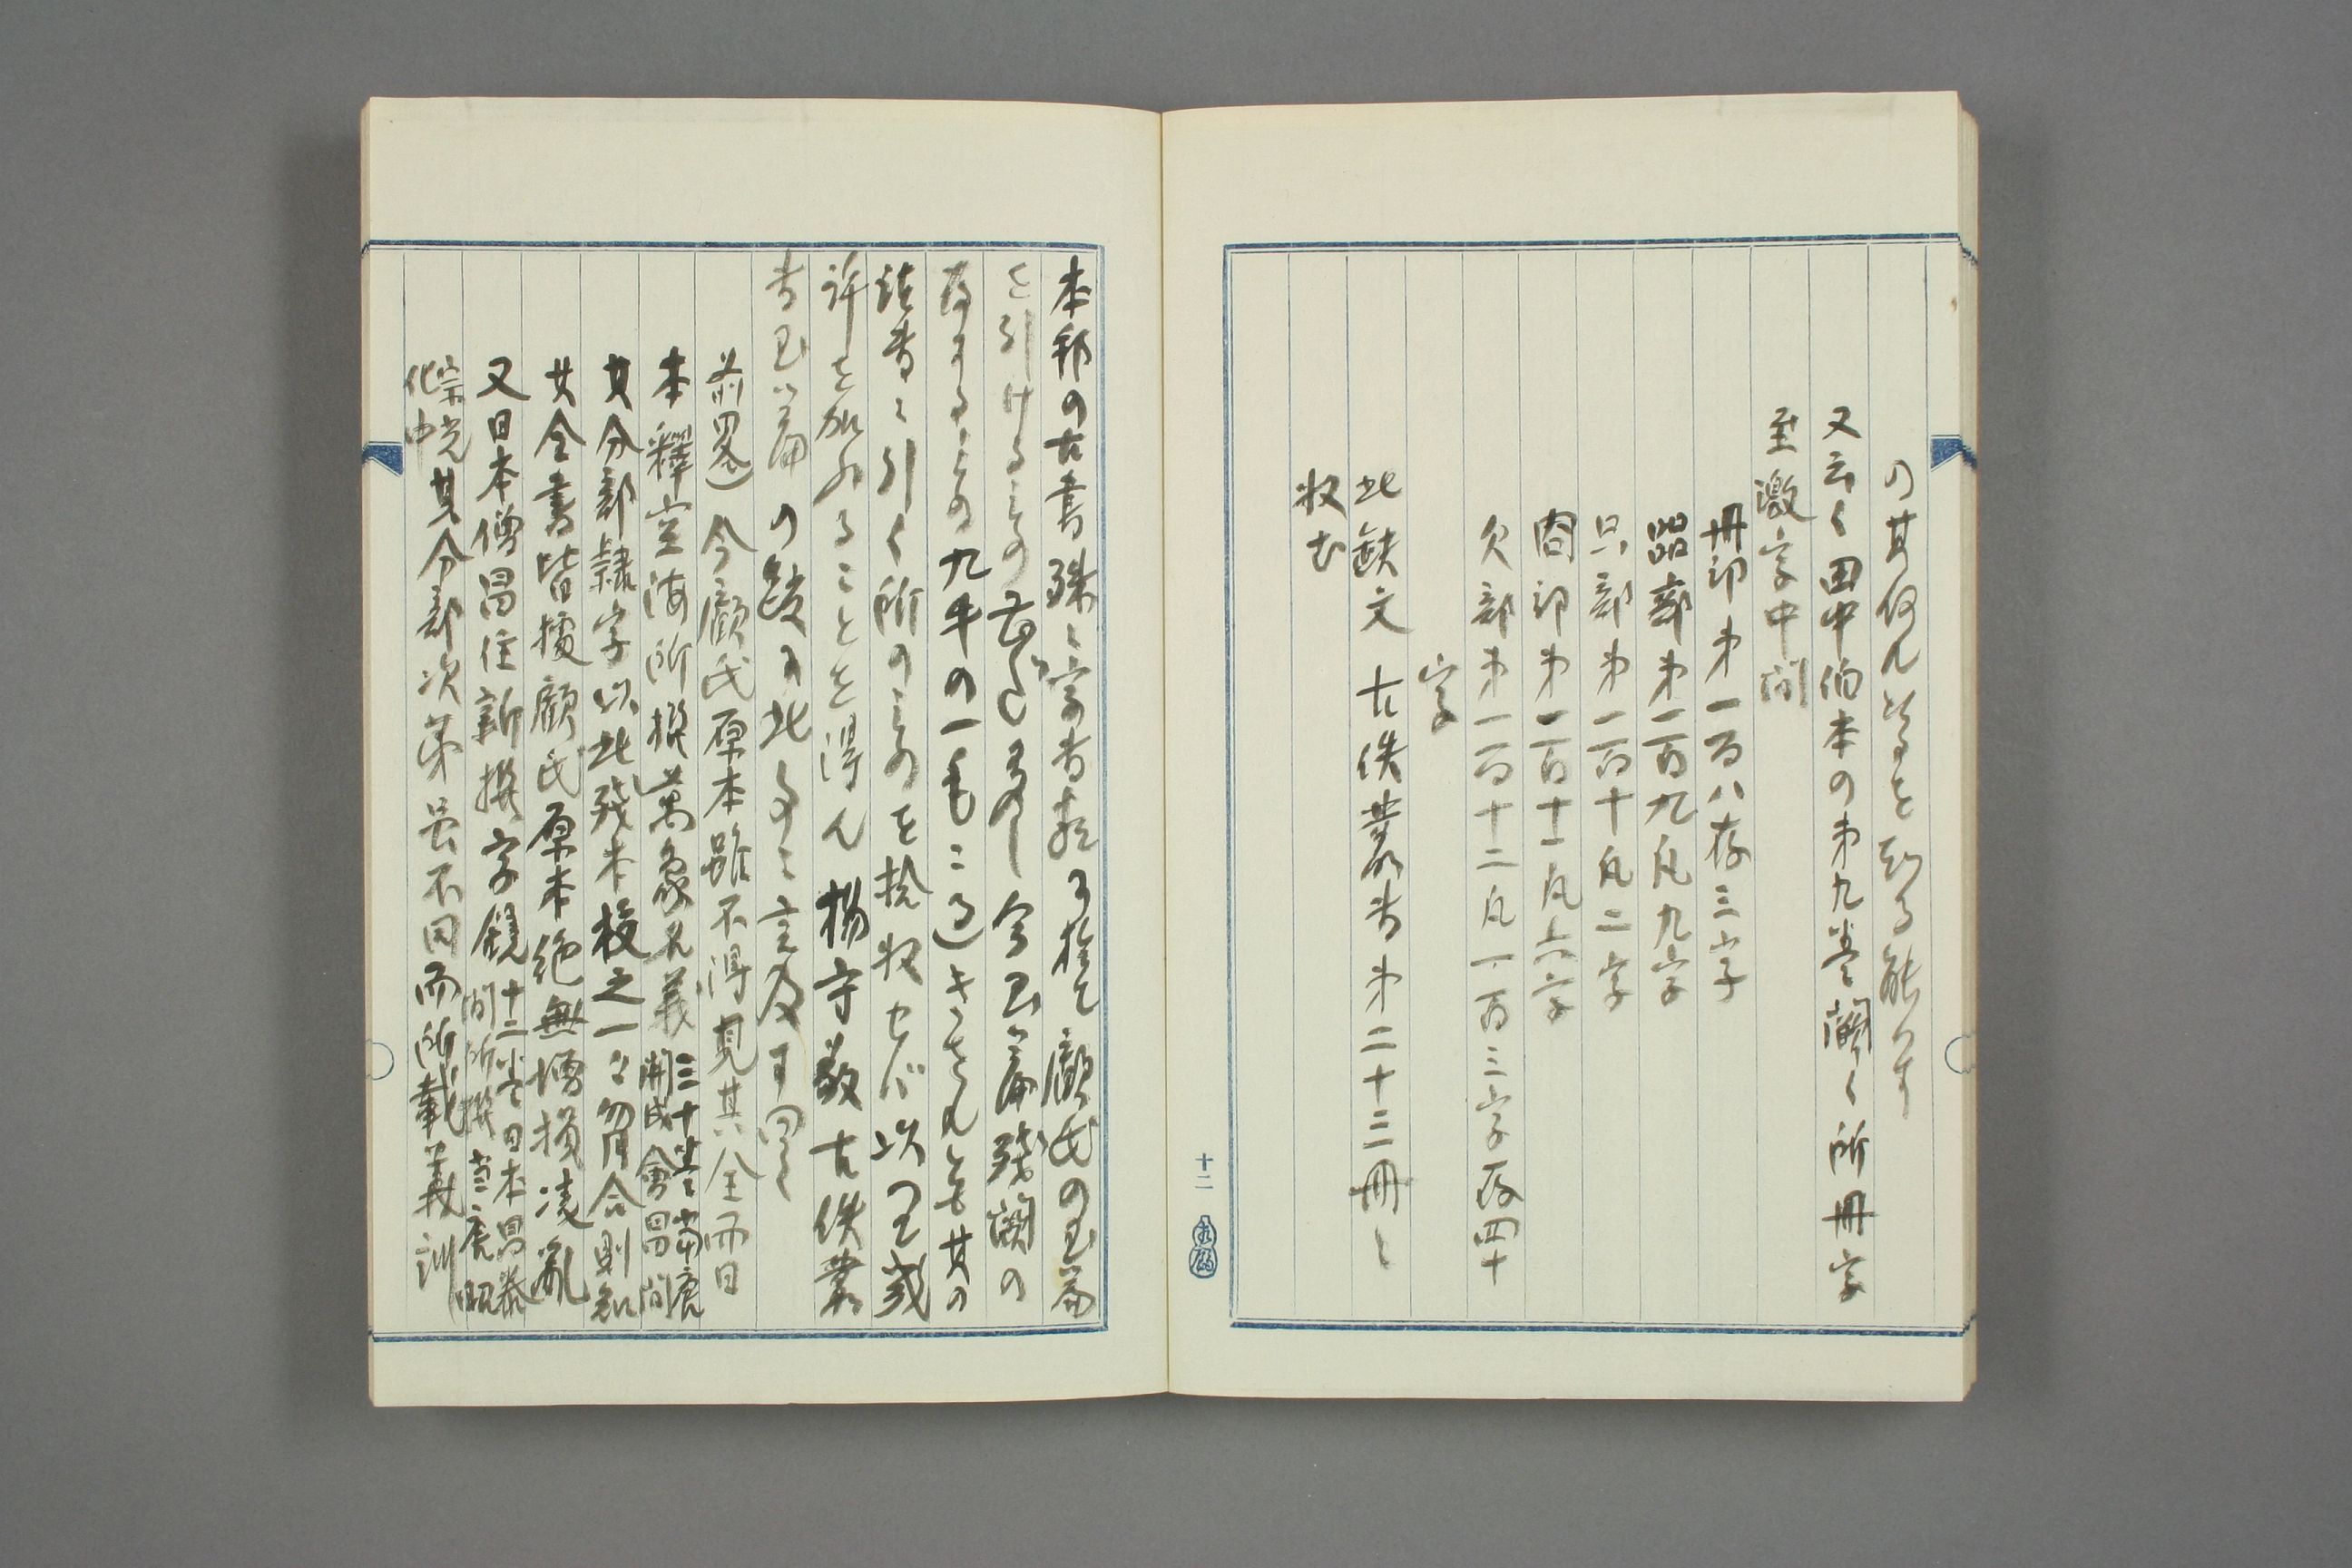 の其何んなるを知る能はす
又云く田中伯本の第九巻闕く所冊字
至激字中間
冊部第一百八存三字
㗊部第一百九凡九字
只部第一百十凡二字
㕯部第一百十一凡六字
欠部第一百十二凡一百三字存四十
字
此缺文 古佚叢書第二十三冊に
收む
十二
本邦の古書殊に字書類に於て顧氏の玉篇
を引けるもの甚だ多し 今玉篇殘闕の
存するもの九牛の一毛に過きされとも其の
諸書に引く所のものを拾收せば以て正誤
許を加ふることを得ん 楊守敬古佚叢
書玉篇の跋に此事に言及す 曰く
前畧) 今顧氏原本雖不得見其全而日
本釋空海所撰萬象名義 三十巻當唐開成會昌間
其分部隸字以此殘本校之一々脗合則知
其全書皆據顧氏原本絶無增損凌亂
又日本僧昌住新撰字鏡 十二巻日本昌泰間所撰當唐昭
宗光化中 其分部次第虽不同而所載義訓